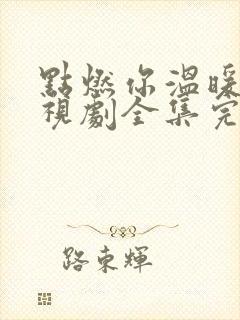 點燃你溫暖
視劇全集完
路東輝